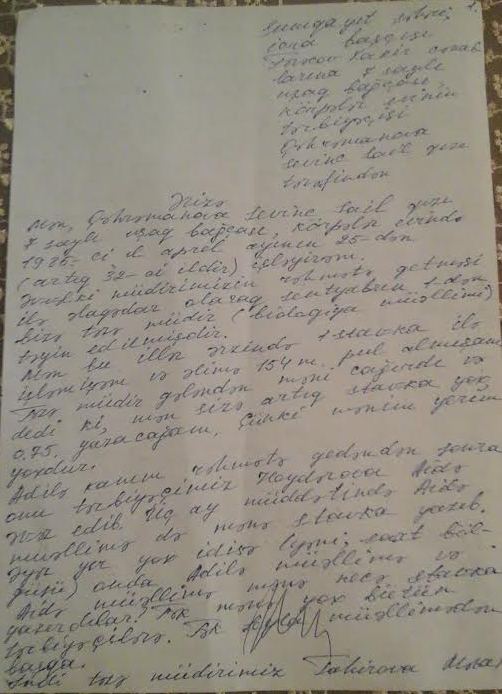 1.
Sumqayıt şəhəri,
icra başçısı
Zakir cənab
larına 7 saylı
uşaq bağçası,
körpələr evinin
tərbiyəçisi
Qəhrəmanova
Sevinc Sail qızı
tərəfindən
Ərizə
Mən, Qəhrəmanova Sevinc Sail qızı
7 saylı uşaq bağçası, körpələr evində
1985-ci il aprel ayının 25-dən
(artıq 32-ci ildir) işləyirəm.
Əvvəlki müdirimizin rəhmətə getməsi
ilə əlaqədar olaraq sentyabrın 1-dən
bizə təzə müdir (biologiya müəllimi)
təyin edilmişdir.
Mən bu illər ərzində 1 stavka ilə
işləmişəm və əlimə 154 m. pul almışam.
Təzə müdir gələndən məni çağırdı və
dedi ki, mən sizə artıq stavka yox,
0.75 yazacağam, çünki mənim yerim
yoxdur.
Adilə xanım rəhmətə gedəndən sonra
onu tərbiyəçimiz Heydərova Aidə
əvəz edib. Üç ay müddətində Aidə
müəllimə də mənə stavka yazıb.
Əgər yer yox idisə (yəni, saat böl-
güsü) onda Adilə müəllimə və
Aidə müəllimə mənə necə stavka
yazırdılar? Tək mənə yox bütün
tərbiyəçilərə. Tək müəllimədən
başqa.
İndi təzə müdirimiz Tahirova